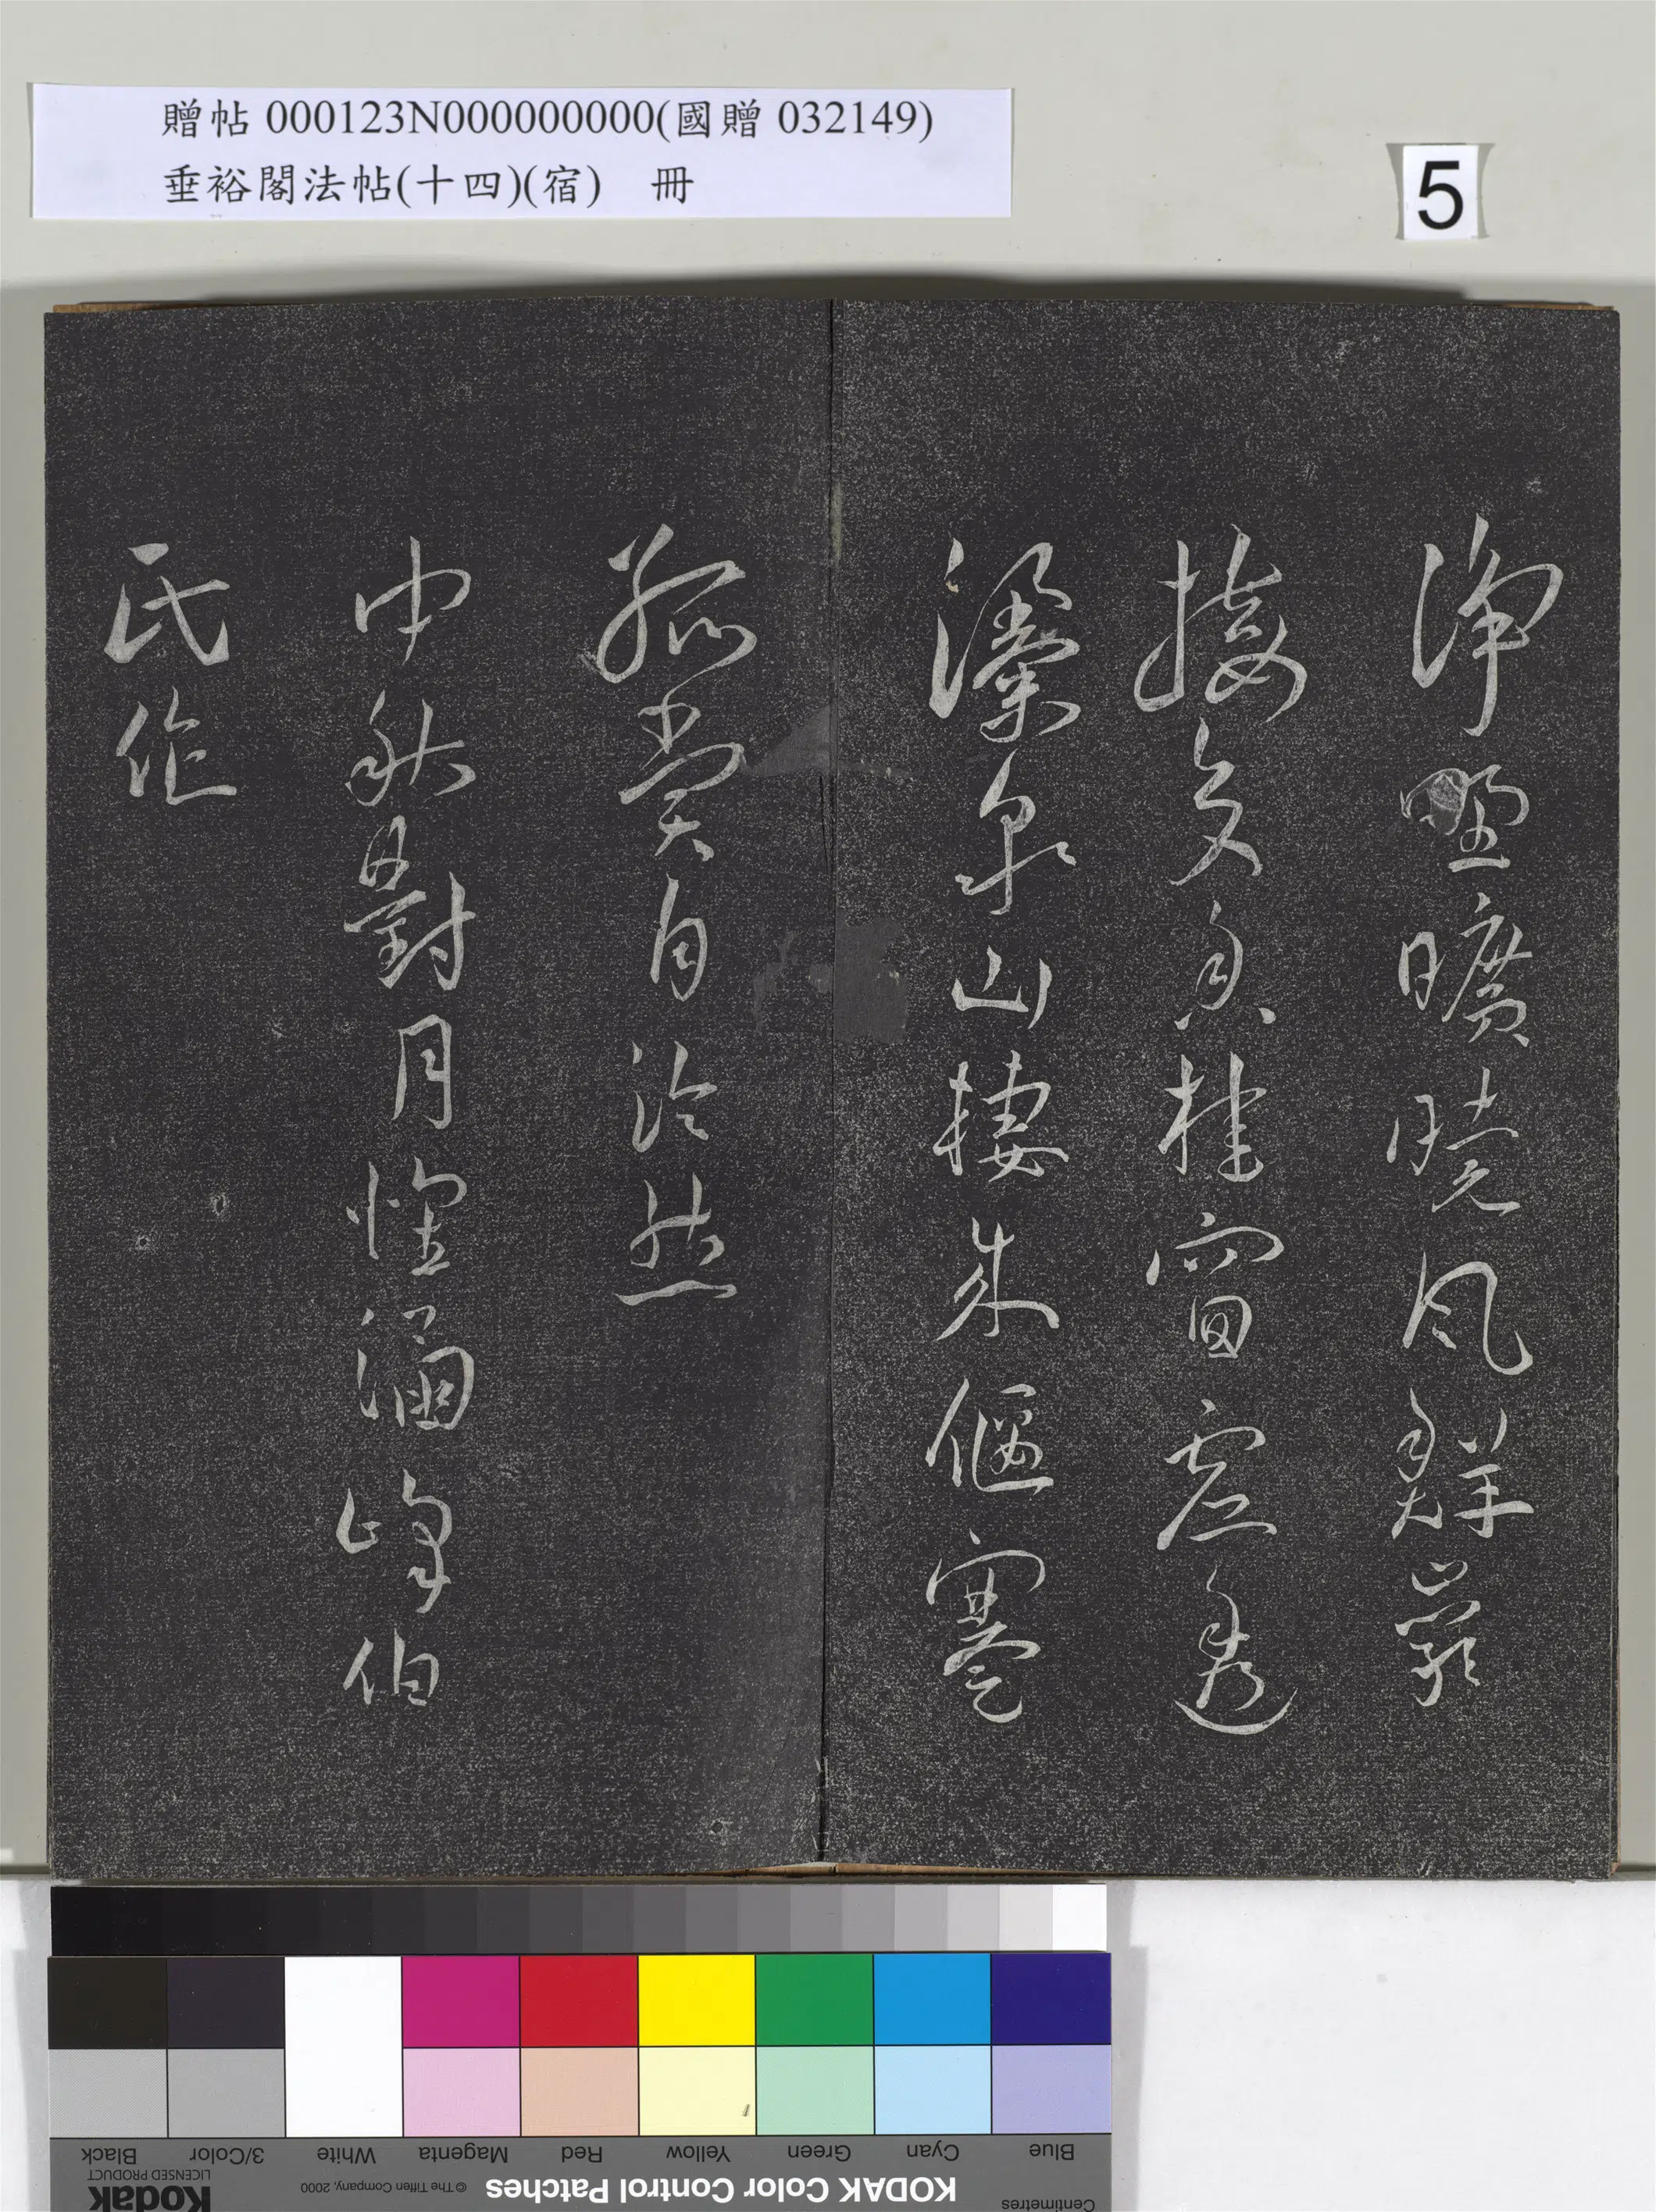 贈帖 000123N000000000(國贈 032149)
垂裕閣法帖(十四)(宿) 冊
5
淨野曠曉風鮮巖
接多香桂窗虛透
瀑泉山棲偃蹇
孤賞自泠然
中秋日對月懷涵峰伯
氏作
Blue Cyan Green Yellow Red Magenta White 3/Color Black
Centimetres KODAK Color Control Patches © The Tiffen Company, 2000 Kodak
LICENSED PRODUCT